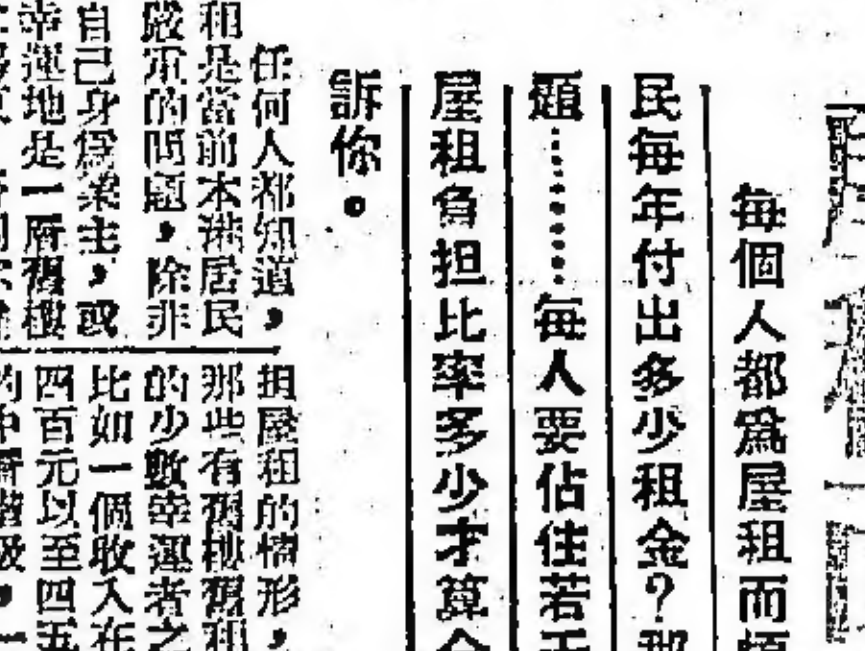 每個人都爲屋租而煩
民每年付出多少租金？那
題………每人要佔住若干
屋租負担比率多少才算合
訴你。
任何人都知道，
租是當前本港居民
嚴重的問題，除非
自己身爲業主，或
幸運地是一層舊樓
担屋租的情形，
那些有舊樓舊租
的少數幸運者之
比如一個收入在
四百元以至四五
的中層階級，一